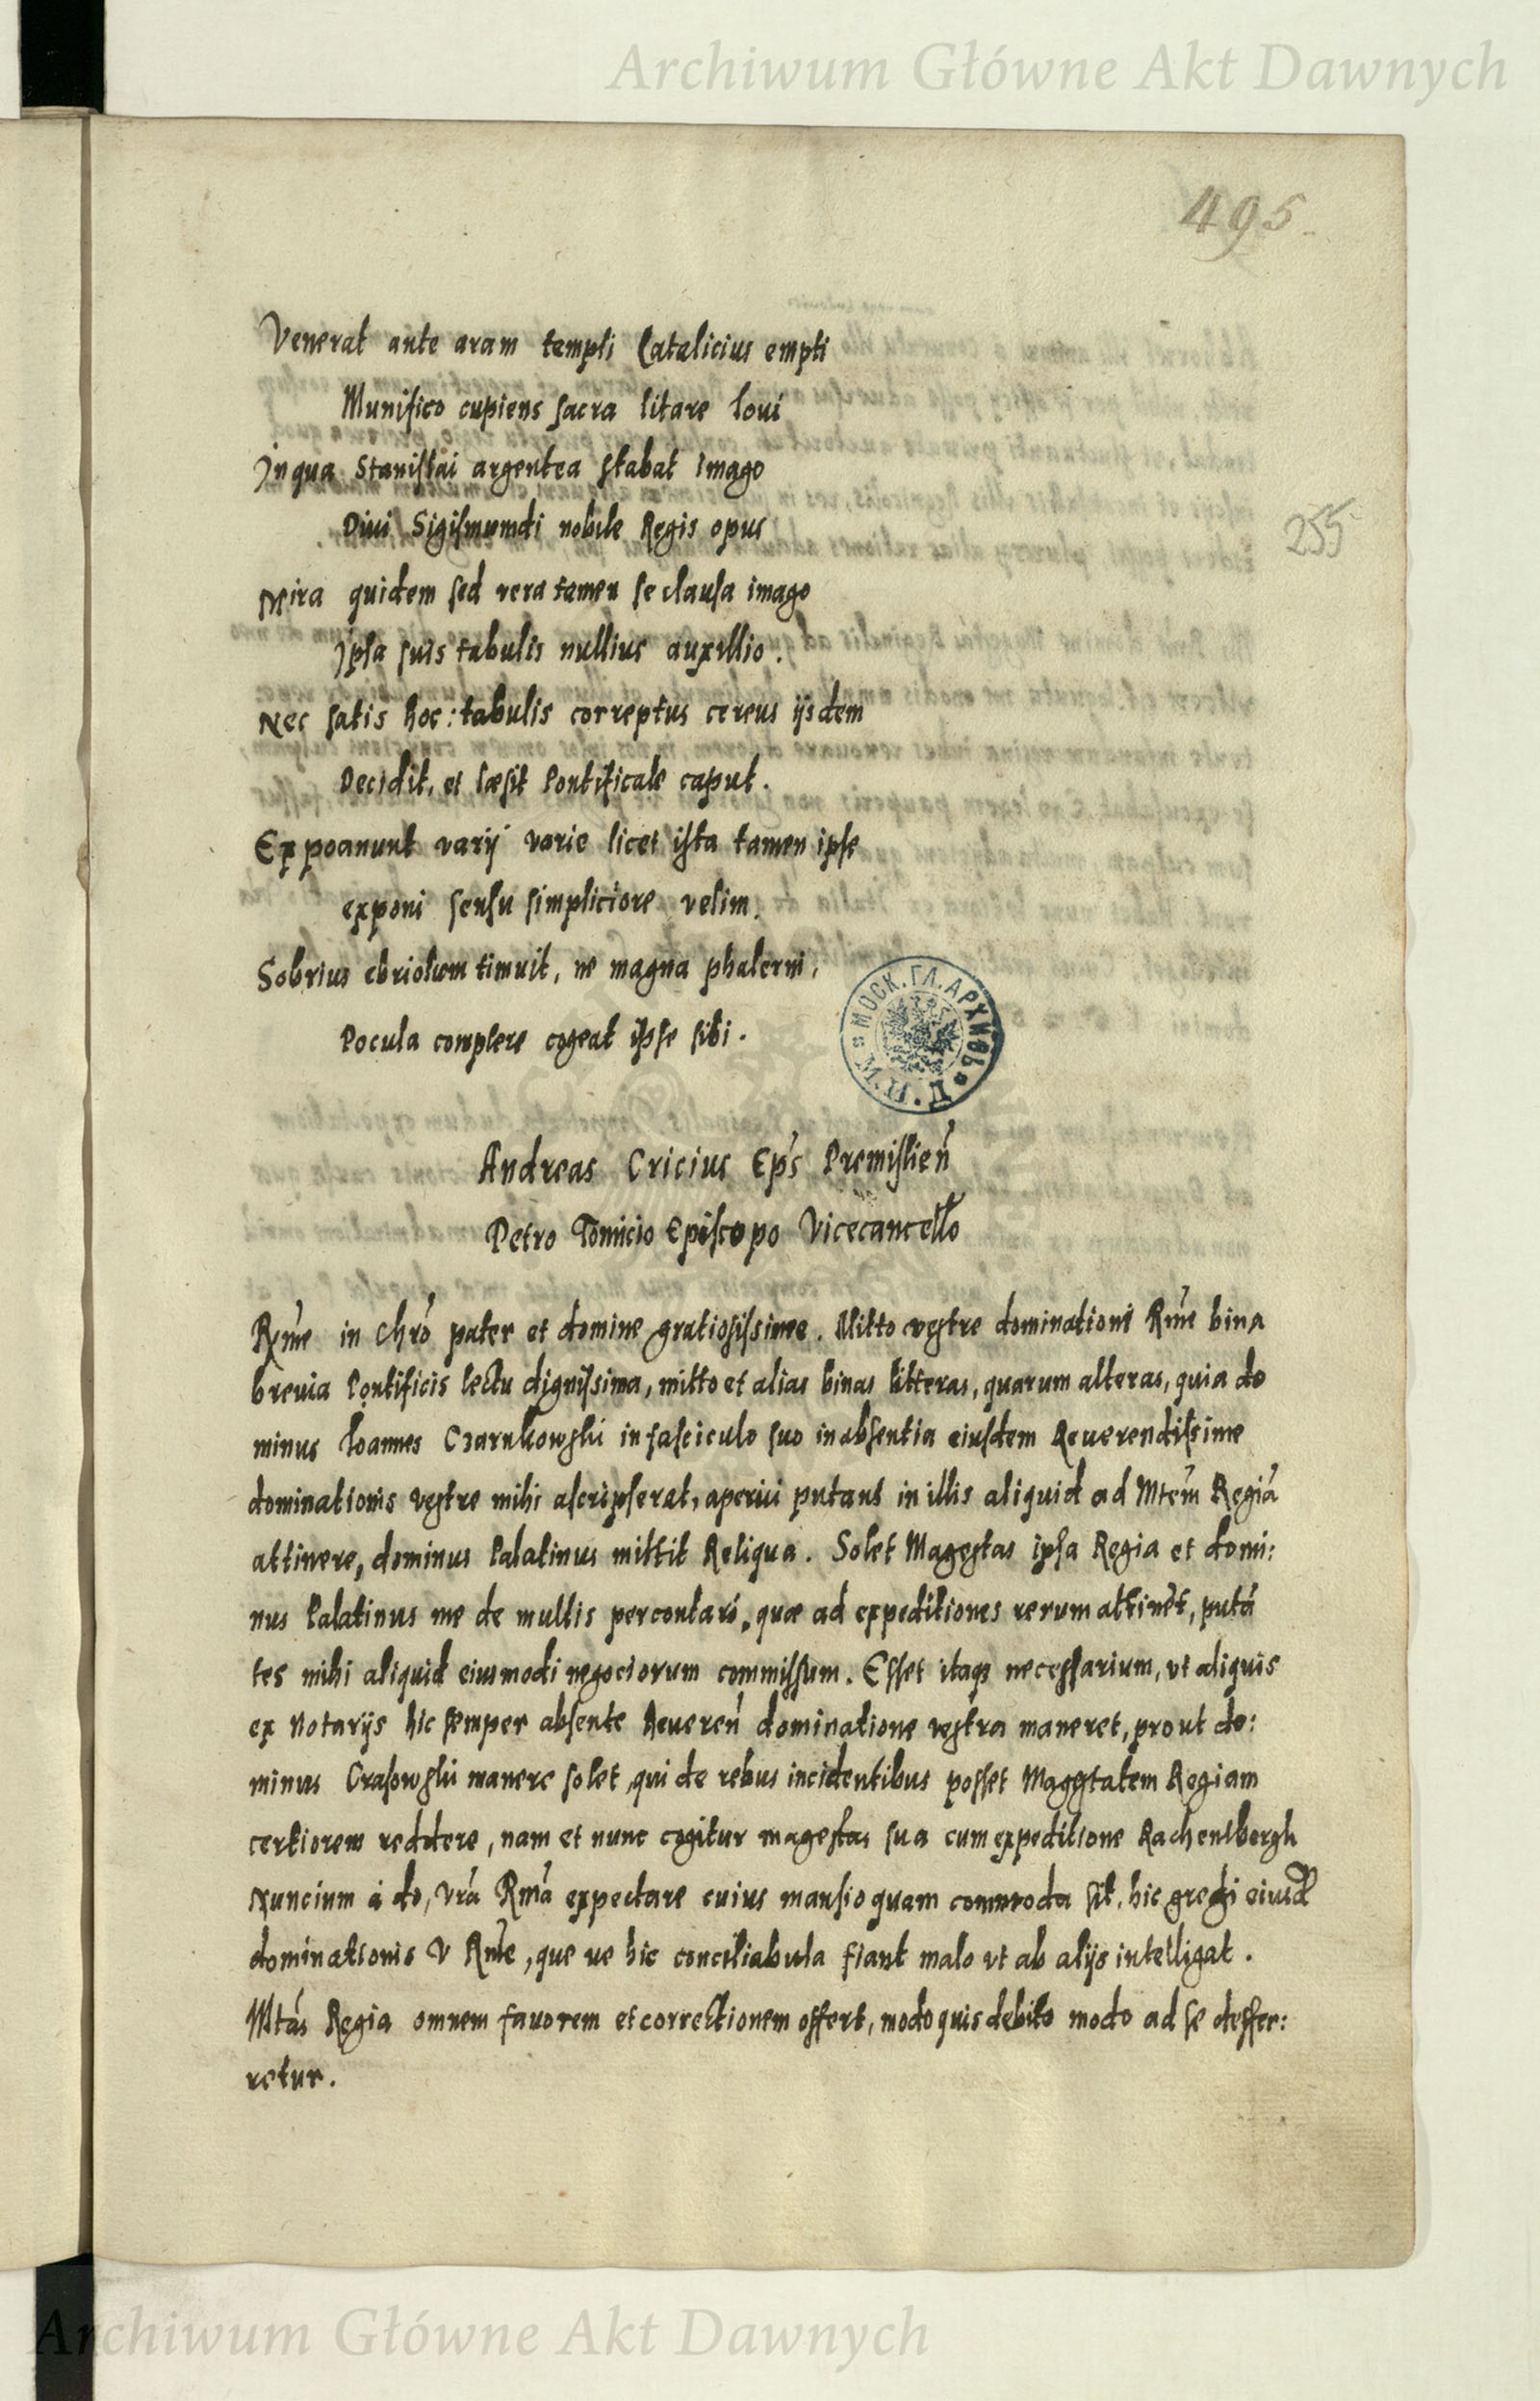 Archiwum Główne Akt Dawnych
495
Venerat ante aram templi Catalicius empti
Munifico cupiens sacra litare Ioui
Jn qua Stanislai argentea stabat imago
Diui Sigismumdi nobile Regis opus
255
Mira quidem sed vera tamen se clausa imago
Jpsa suis tabulis nullius auxillio.
Nec satis hoc: tabulis correptus cereus ijsdem
Decidit, et læsit Pontificale caput.
Expoanunt varij varie licet ista tamen ipse
exponi sensu simpliciore velim.
Sobrius ebriolum timuit, ne magna phalerni,
Pocula complere cogeat ipse sibi.
МОСК. ГЛ. АРХИВЪ
М. И. Д.
Andreas Cricius Ep̃s Premislien̄
Petro Tomicio Episcopo Vicecancello
Rm̃e in Chr̃o pater et domine gratiosissimee. Mitto vestre dominationi Rm̃e bina
breuia Pontificis lectu dignissima, mitto et alias binas litteras, quarum alteras, quia do
minus Ioannes Czarnkowski in fasciculo suo in absentia eiusdem Reuerendissime
dominationis vestre mihi ascripserat, aperui putans in illis aliquid ad Mtem̃ Regiã
attinere, dominus Palatinus mittit Reliqua. Solet Magestas ipsa Regia et domi:
nus Palatinus me de multis percontari, quæ ad expeditiones rerum attinẽt, putã
tes mihi aliquid eiusmodi negociorum commissum. Esset itaq; necessarium, vt aliquis
ex Notarijs hic semper absente Reueren̄ dominatione vestra maneret, prout do:
minus Crasowski manere solet, qui de rebus incidentibus posset Magestatem Regiam
certiorem reddere, nam et nunc cogitur magestas sua cum expeditione Rachenbergh
Nuncium á do, Vrã Rmã expectare cuius mansio quam commoda sit, hic gregi eiusd
dominationis V Rm̃e, que ue hic conciliabula fiant malo vt ab alijs intelligat.
Mtãs Regia omnem fauorem et correctionem offert, modo quis debito modo ad se deffer:
retur.
Archiwum Główne Akt Dawnych